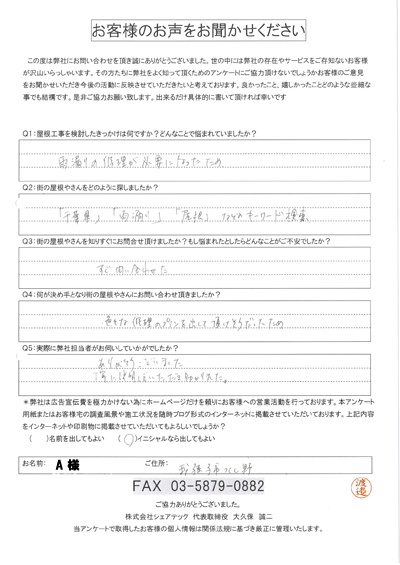 お客様のお声をお聞かせください
この度は弊社にお問い合わせを頂き誠にありがとうございました。世の中には弊社の存在やサービスをご存知ないお客様
が沢山いらっしゃいます。その方たちに弊社をよく知って頂くためのアンケートにご協力頂けないでしょうかお客様のご意見
をお聞かせいただき今後の活動に反映させていただきたいと考えております。良かったこと、嬉しかったことどのような些細な
事でも結構です。是非ご協力お願い致します。出来るだけ具体的に書いて頂ければ幸いです
Q1:屋根工事を検討したきっかけは何ですか?どんなことで悩まれていましたか?
雨漏りの修理が必要になったため
Q2:街の屋根やさんをどのように探しましたか?
「千葉県」「雨漏り」「屋根」などのキーワード検索
Q3:街の屋根やさんを知りすぐにお問合せ頂けますか?もし悩まれたとしたらどんなことがご不安でしたか?
すぐ問い合わせた
Q4:何が決め手となり街の屋根やさんにお問い合わせ頂きましたか?
色々な修理のプランを出して頂けそうだったため
Q5:実際に弊社担当者がお伺いしていかがでしたか?
ありがとうございました
説明していただき助かりました。
*弊社は広告宣伝費を極力かけない為にホームページだけを頼りにお客様への営業活動を行っております。本アンケート
用紙またはお客様宅の調査風景や施工状況を随時ブログ形式のインターネットに掲載させていただいております。上記内容
をインターネットや印刷物に掲載させていただいてもよろしいでしょうか?
( )名前を出してもよい (○)イニシャルなら出してもよい
お名前: A様 ご住所: 我孫子市つくし野
FAX 03-5879-0882
渡邉
ご協力ありがとうございました。
株式会社シェアテック 代表取締役 大久保 誠二
当アンケートで取得したお客様の個人情報は関係法規に基づき厳正に管理いたします。